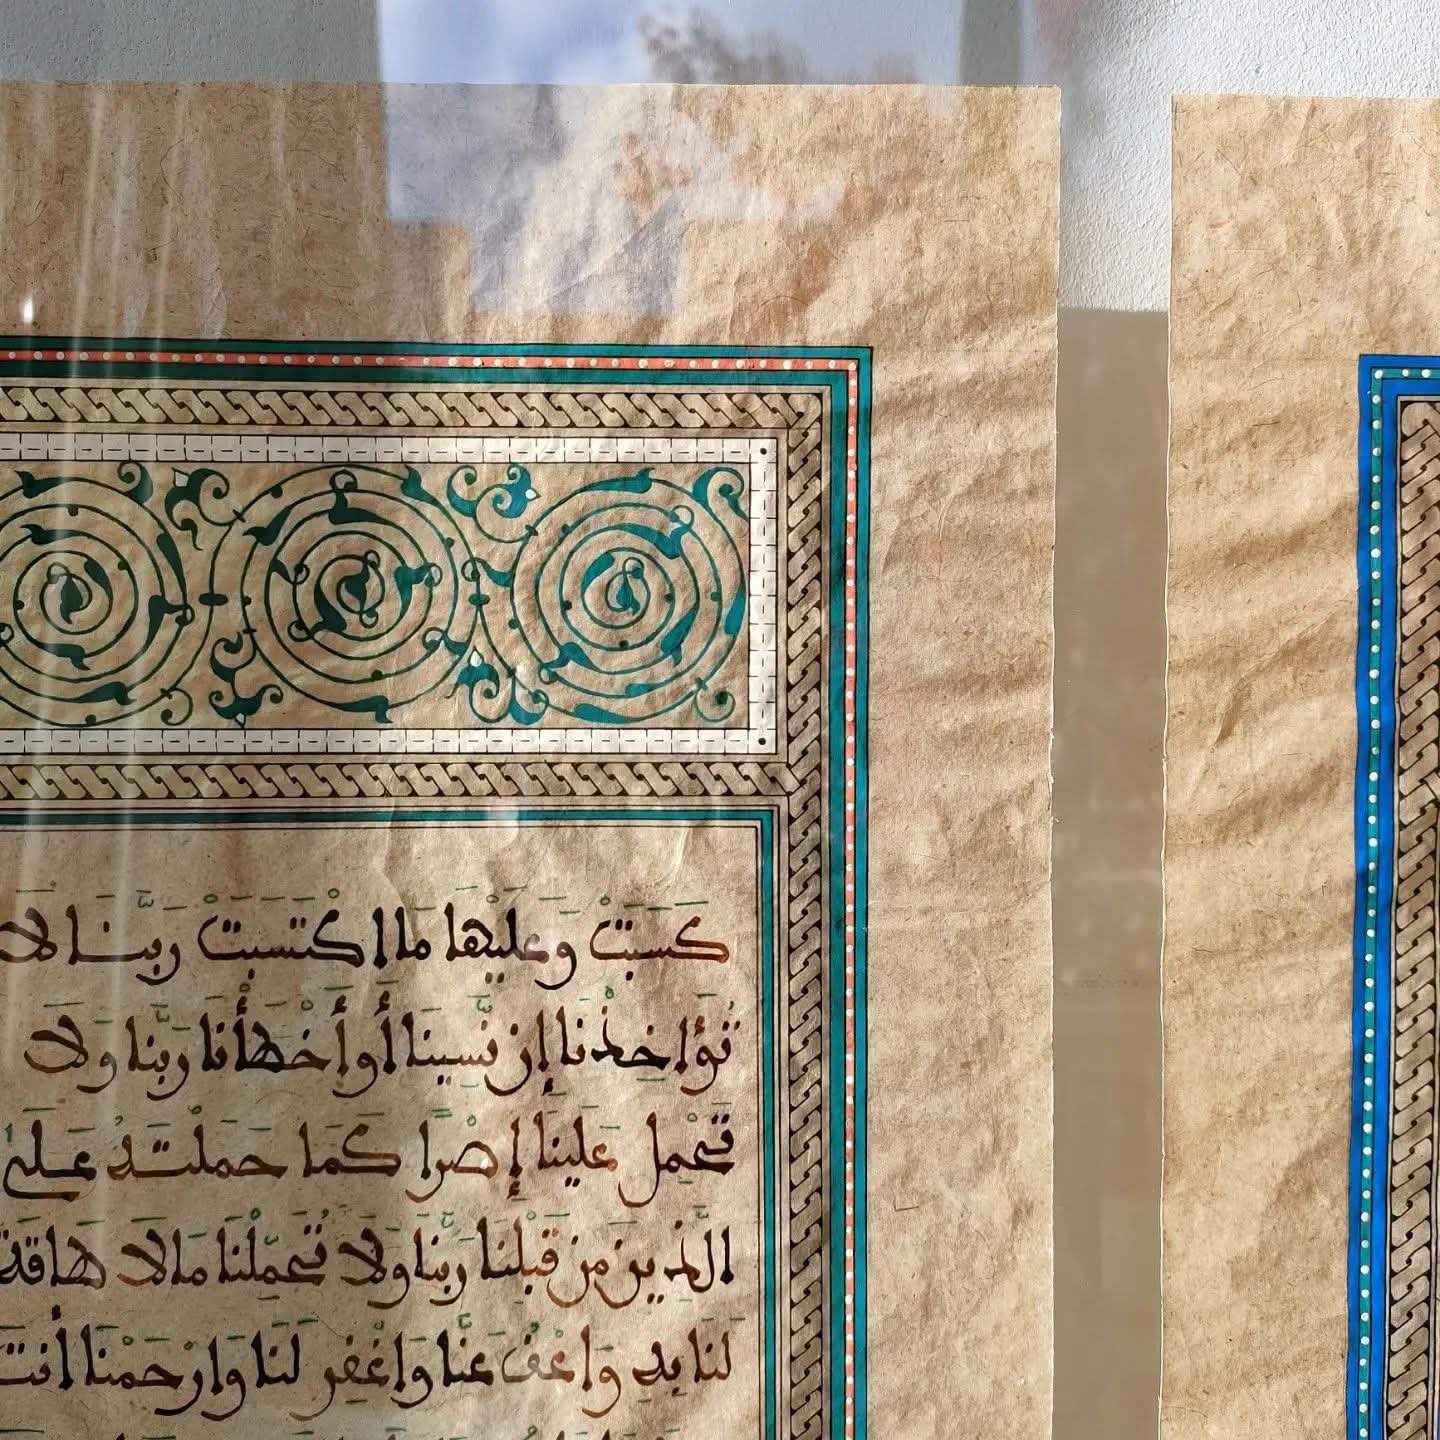 كَسَبَتْ وَعَلَيْهَا مَا اكْتَسَبَتْ رَبَّنَا لَا
تُؤَاخِذْنَا إِن نَّسِينَا أَوْ أَخْطَأْنَا رَبَّنَا وَلَا
تَحْمِلْ عَلَيْنَا إِصْرًا كَمَا حَمَلْتَهُ عَلَى
الَّذِينَ مِن قَبْلِنَا رَبَّنَا وَلَا تُحَمِّلْنَا مَا لَا طَاقَةَ
لَنَا بِهِ وَاعْفُ عَنَّا وَاغْفِرْ لَنَا وَارْحَمْنَا أَنتَ